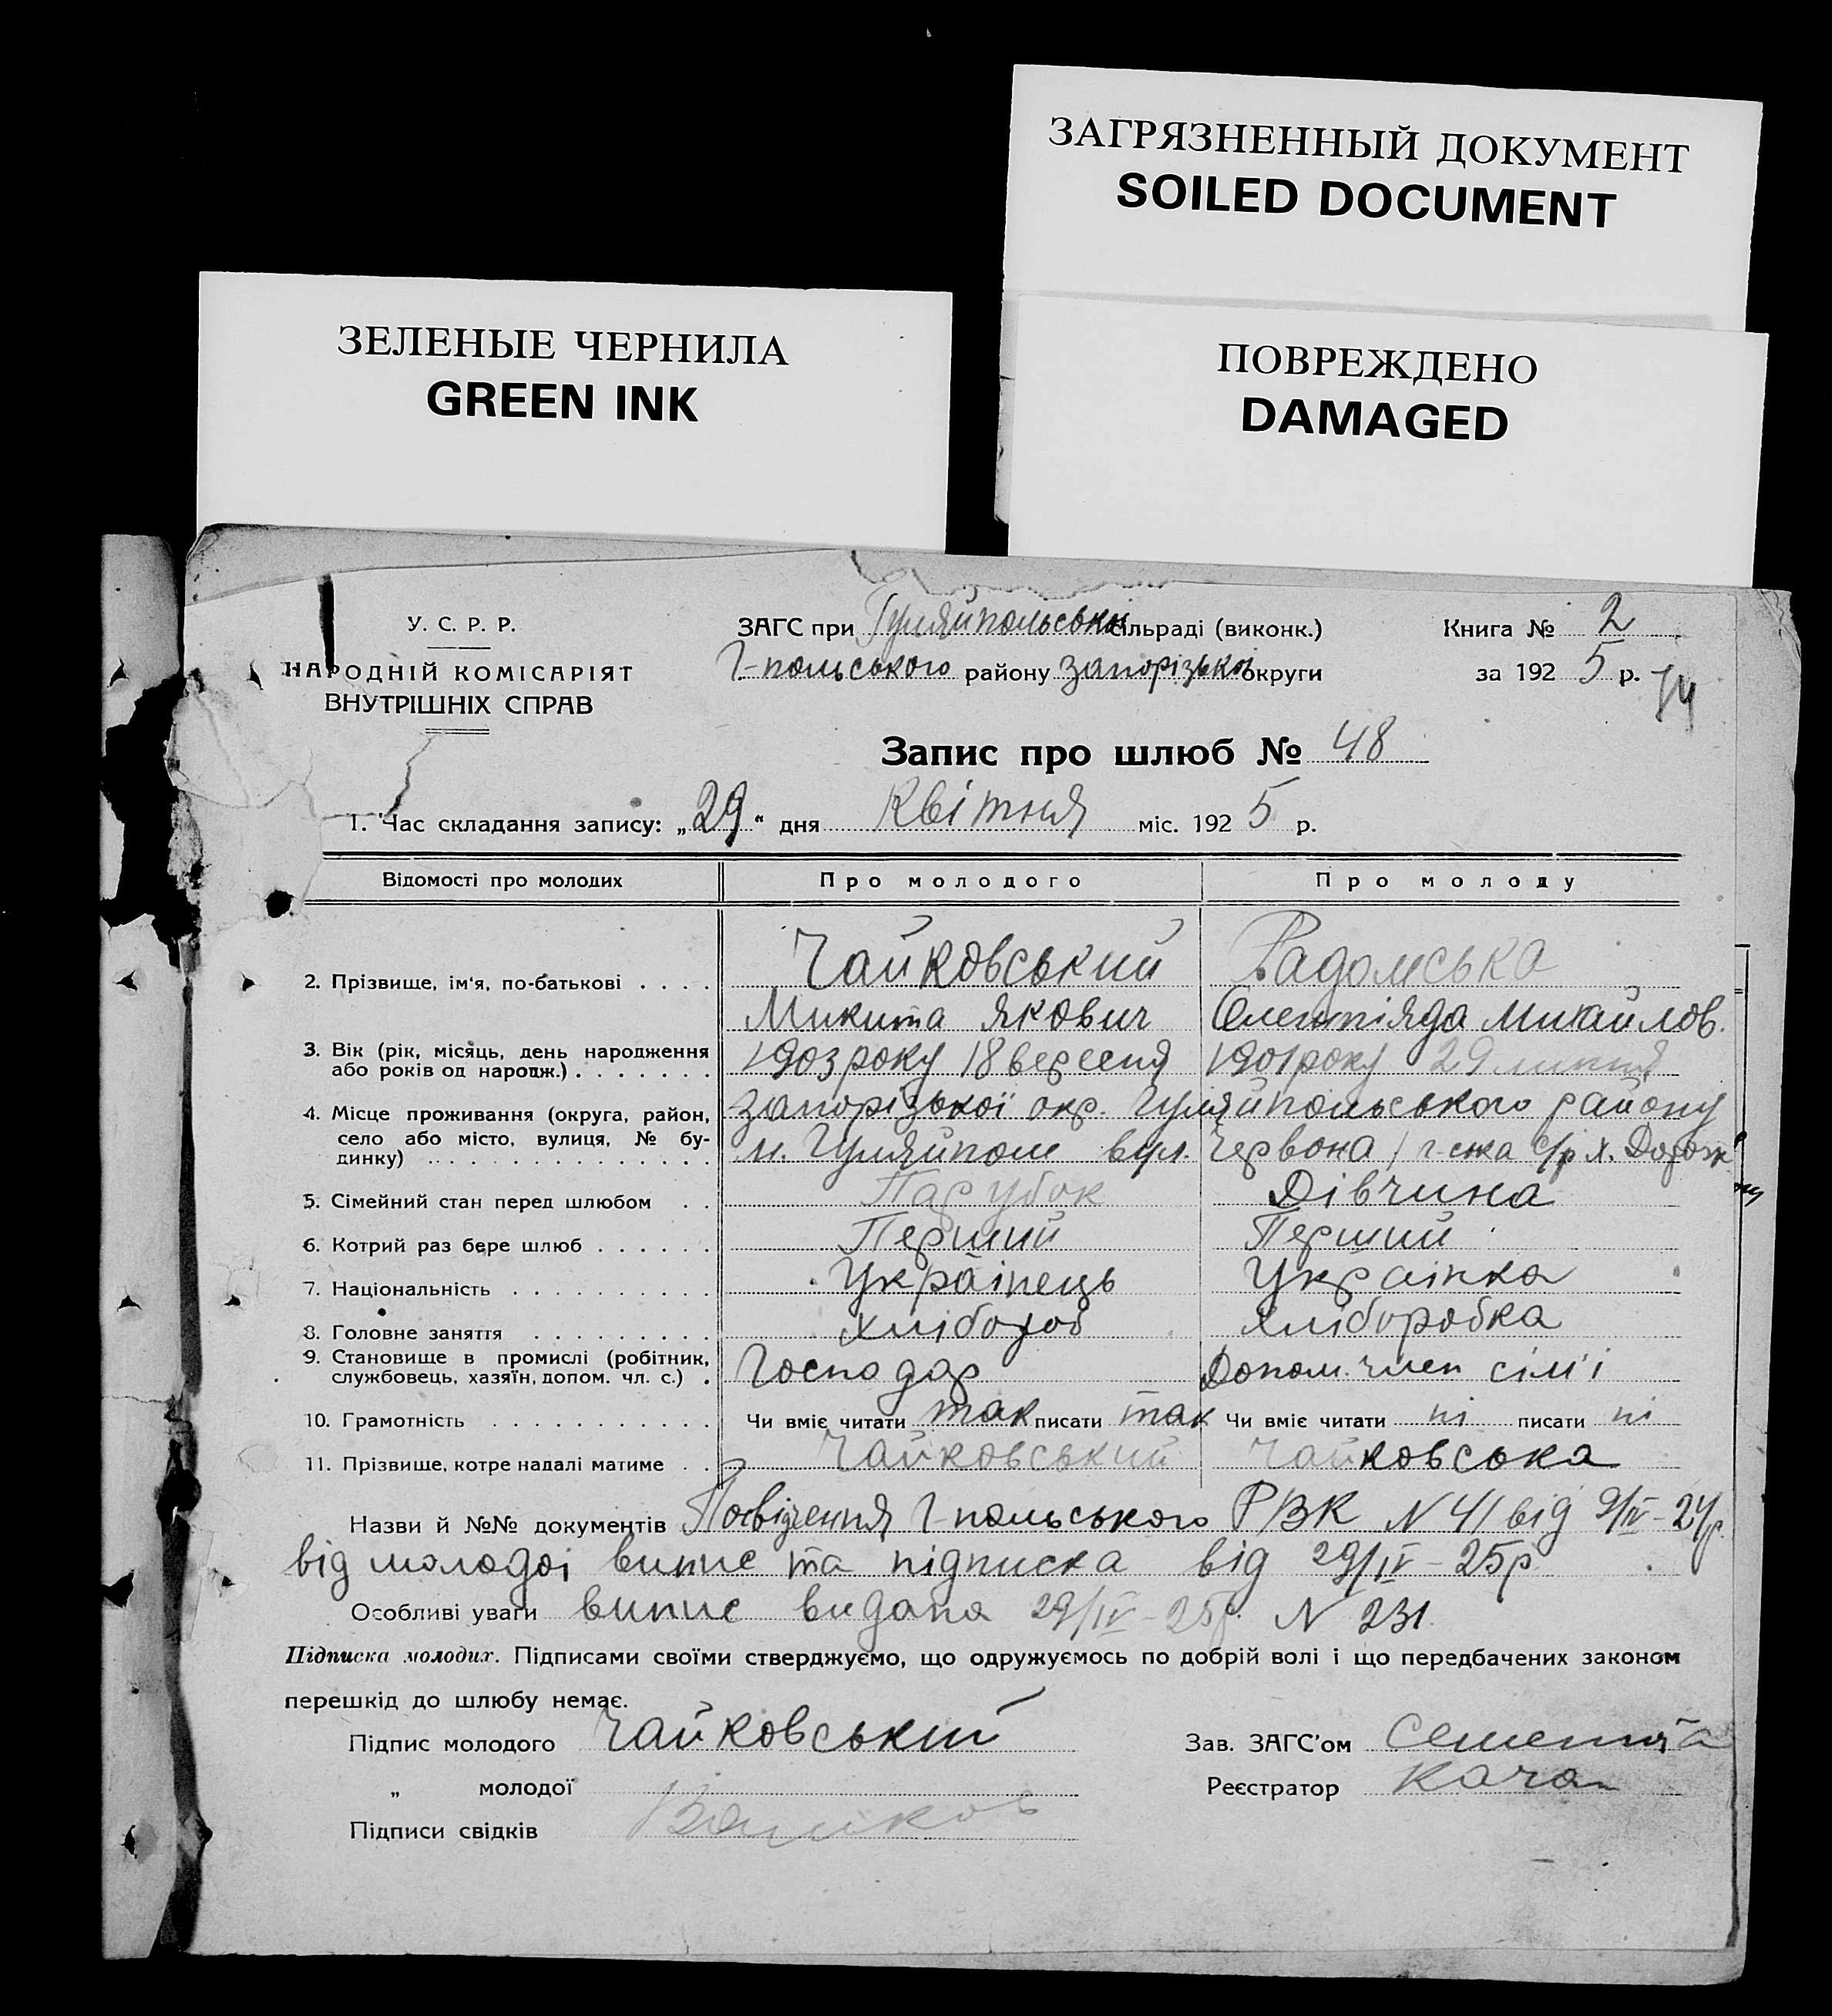 ЗАГРЯЗНЕННЫЙ ДОКУМЕНТ
SOILED DOCUMENT
ЗЕЛЕНЫЕ ЧЕРНИЛА
GREEN INK
ПОВРЕЖДЕНО
DAMAGED
У. С. Р. Р.
НАРОДНІЙ КОМІСАРІЯТ
ВНУТРІШНІХ СПРАВ
ЗАГС при Гуляйпольськ сільраді (виконк.)
Г-польського району Запорізької округи
Книга № 2
за 1925 р.
74
Запис про шлюб № 48
1. Час складання запису: „29“ дня Квітня міс. 1925 р.
Відомості про молодих Про молодого Про молоду
2. Прізвище, ім'я, по-батькові . . . . Чайковський Радомська
Микита Якович Олемпіяда Михайлов.
3. Вік (рік, місяць, день народження або років од народж.) . . . . . . . 1903 року 18 вересня 1901 року 29 липня
4. Місце проживання (округа, район, село або місто, вулиця, № будинку) . . . . . . . . . . . . . . Запорізької окр. Гуляйпольського району
м. Гуляйполе вул. Червона / г-ська с/р х.
5. Сімейний стан перед шлюбом . . Парубок Дівчина
6. Котрий раз бере шлюб . . . . . . Перший Перший
7. Національність . . . . . . . . . . Українець Українка
8. Головне заняття . . . . . . . . . Хлібороб Хліборобка
9. Становище в промислі (робітник, службовець, хазяїн, допом. чл. с.) . Господар Допом. член сім'ї
10. Грамотність . . . . . . . . . . . Чи вміє читати так писати так Чи вміє читати ні писати ні
11. Прізвище, котре надалі матиме . . Чайковський Чайковська
Назви й №№ документів Посвідчення Г-польського РВК N 41 від 9/IV-24р.
від молодої випис та підписка від 29/IV-25р
Особливі уваги випис видана 29/IV-25р. N 231.
Підписка молодих. Підписами своїми стверджуємо, що одружуємось по добрій волі і що передбачених законом
перешкід до шлюбу немає.
Підпис молодого Чайковський
Зав. ЗАГС'ом
„ молодої
Реєстратор Качан
Підписи свідків